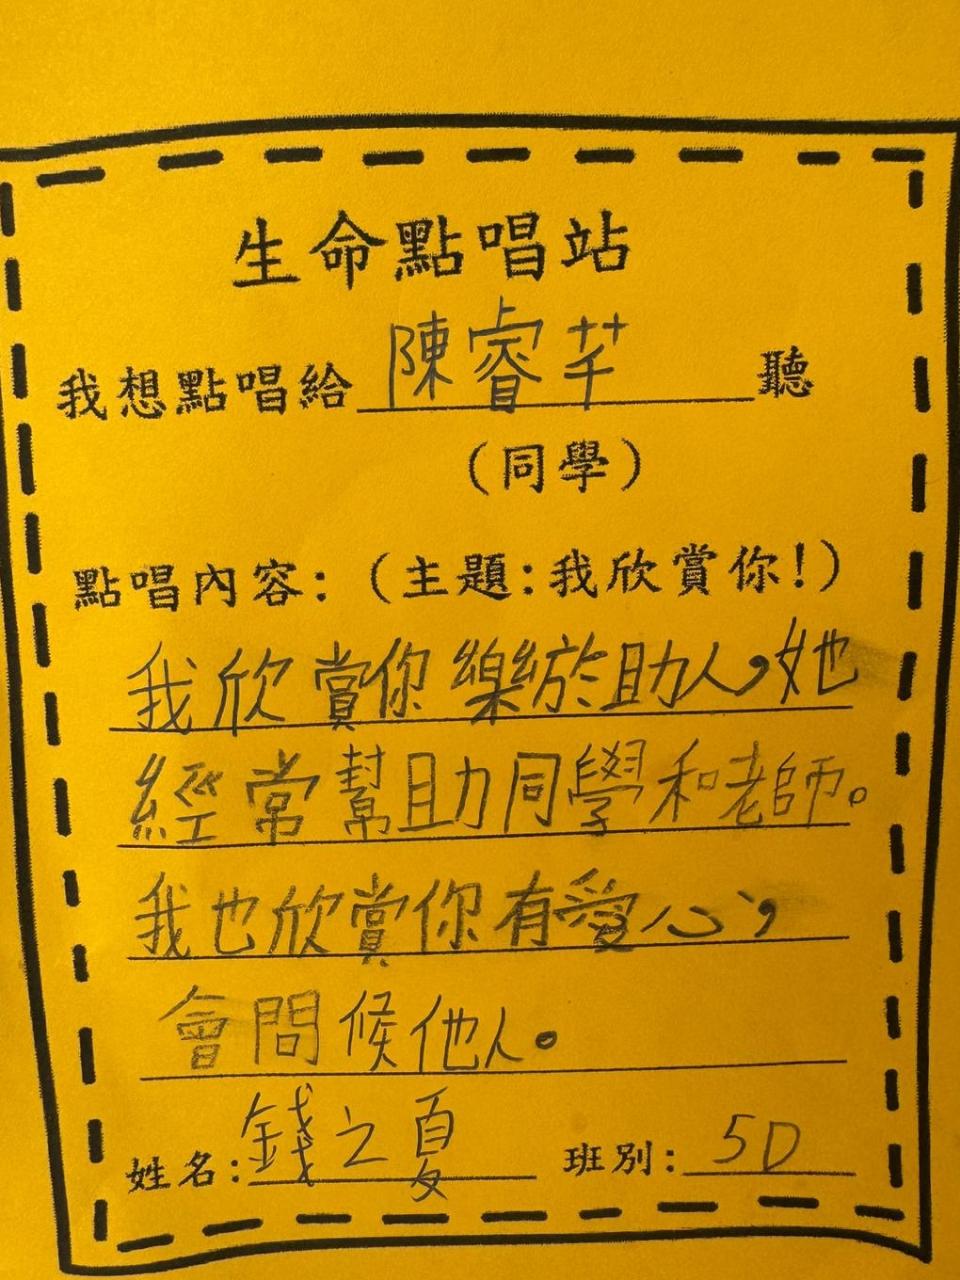 生命點唱站
我想點唱給陳睿芊聽
(同學)
點唱內容:(主題:我欣賞你!)
我欣賞你樂於助人,她
經常幫助同學和老師。
我也欣賞你有愛心,
會問候他人。
姓名:錢之夏 班別:5D